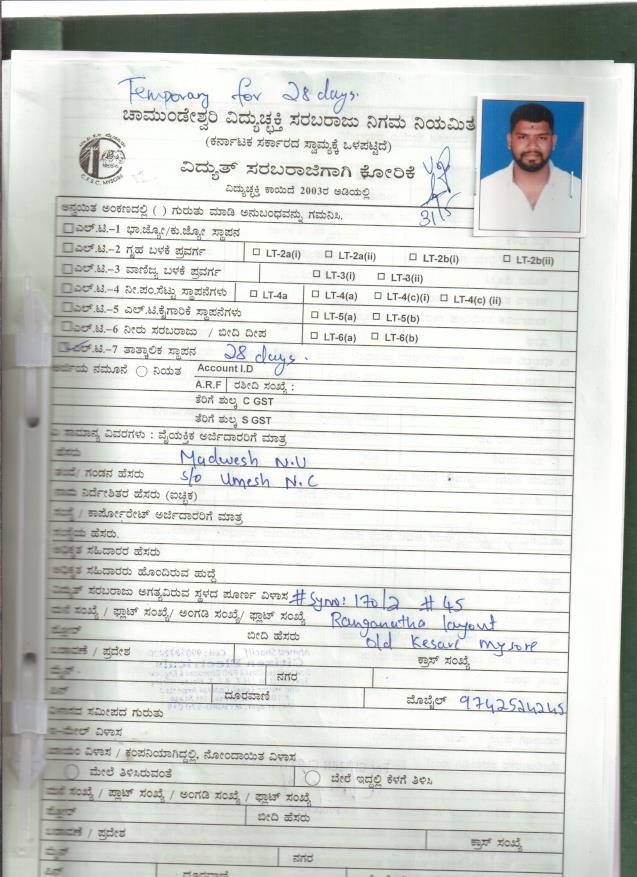 Temporary for 28 days.
ಚಾಮುಂಡೇಶ್ವರಿ ವಿದ್ಯುಚ್ಛಕ್ತಿ ಸರಬರಾಜು ನಿಗಮ ನಿಯಮಿತ
(ಕರ್ನಾಟಕ ಸರ್ಕಾರದ ಸ್ವಾಮ್ಯಕ್ಕೆ ಒಳಪಟ್ಟಿದೆ)
ವಿದ್ಯುತ್ ಸರಬರಾಜಿಗಾಗಿ ಕೋರಿಕೆ
ವಿದ್ಯುಚ್ಛಕ್ತಿ ಕಾಯಿದೆ 2003ರ ಅಡಿಯಲ್ಲಿ
31/5
ಅನ್ವಯಿತ ಅಂಕಣದಲ್ಲಿ ( ) ಗುರುತು ಮಾಡಿ ಅನುಬಂಧವನ್ನು ಗಮನಿಸಿ.
ಎಲ್.ಟಿ.–1 ಭಾ.ಜ್ಯೋ/ಕು.ಜ್ಯೋ ಸ್ಥಾಪನ
ಎಲ್.ಟಿ.–2 ಗೃಹ ಬಳಕೆ ಪ್ರವರ್ಗ LT-2a(i) LT-2a(ii) LT-2b(i) LT-2b(ii)
ಎಲ್.ಟಿ.–3 ವಾಣಿಜ್ಯ ಬಳಕೆ ಪ್ರವರ್ಗ LT-3(i) LT-3(ii)
ಎಲ್.ಟಿ.–4 ನೀ.ಪಂ.ಸೆಟ್ಟು ಸ್ಥಾಪನೆಗಳು LT-4a LT-4(a) LT-4(c)(i) LT-4(c) (ii)
ಎಲ್.ಟಿ.–5 ಎಲ್.ಟಿ.ಕೈಗಾರಿಕೆ ಸ್ಥಾಪನೆಗಳು LT-5(a) LT-5(b)
ಎಲ್.ಟಿ.–6 ನೀರು ಸರಬರಾಜು / ಬೀದಿ ದೀಪ LT-6(a) LT-6(b)
ಎಲ್.ಟಿ.–7 ತಾತ್ಕಾಲಿಕ ಸ್ಥಾಪನ 28 days.
ಅರ್ಜಿಯ ನಮೂನೆ ನಿಯತ Account I.D
A.R.F ರಶೀದಿ ಸಂಖ್ಯೆ :
ತೆರಿಗೆ ಶುಲ್ಕ C GST
ತೆರಿಗೆ ಶುಲ್ಕ S GST
ಸಾಮಾನ್ಯ ವಿವರಗಳು : ವೈಯಕ್ತಿಕ ಅರ್ಜಿದಾರರಿಗೆ ಮಾತ್ರ
ಹೆಸರು Madwesh N.U
ತಂದೆ/ ಗಂಡನ ಹೆಸರು S/o Umesh N.C
ನಾಮ ನಿರ್ದೇಶಿತರ ಹೆಸರು (ಐಚ್ಛಿಕ)
ಸಂಸ್ಥೆ / ಕಾರ್ಪೋರೇಟ್ ಅರ್ಜಿದಾರರಿಗೆ ಮಾತ್ರ
ಸಂಸ್ಥೆಯ ಹೆಸರು.
ಅಧಿಕೃತ ಸಹಿದಾರರ ಹೆಸರು
ಅಧಿಕೃತ ಸಹಿದಾರರು ಹೊಂದಿರುವ ಹುದ್ದೆ
ವಿದ್ಯುತ್ ಸರಬರಾಜು ಅಗತ್ಯವಿರುವ ಸ್ಥಳದ ಪೂರ್ಣ ವಿಳಾಸ # Syno: 170/2 # 45
ಮನೆ ಸಂಖ್ಯೆ / ಫ್ಲಾಟ್ ಸಂಖ್ಯೆ/ ಅಂಗಡಿ ಸಂಖ್ಯೆ/ ಫ್ಲಾಟ್ ಸಂಖ್ಯೆ Ranganatha layout
ಬೀದಿ ಹೆಸರು Old Kesari mysore
ಬಡಾವಣೆ / ಪ್ರದೇಶ ಕ್ರಾಸ್ ಸಂಖ್ಯೆ
ಮೈನ್ ನಗರ
ಪಿನ್ ದೂರವಾಣಿ ಮೊಬೈಲ್ 9742524245
ವಿಳಾಸದ ಸಮೀಪದ ಗುರುತು
ಇ-ಮೇಲ್ ವಿಳಾಸ
ಖಾಯಂ ವಿಳಾಸ / ಕಂಪನಿಯಾಗಿದ್ದಲ್ಲಿ, ನೋಂದಾಯಿತ ವಿಳಾಸ
ಮೇಲೆ ತಿಳಿಸಿರುವಂತೆ ಬೇರೆ ಇದ್ದಲ್ಲಿ ಕೆಳಗೆ ತಿಳಿಸಿ
ಮನೆ ಸಂಖ್ಯೆ / ಫ್ಲಾಟ್ ಸಂಖ್ಯೆ / ಅಂಗಡಿ ಸಂಖ್ಯೆ / ಫ್ಲಾಟ್ ಸಂಖ್ಯೆ
ಬೀದಿ ಹೆಸರು
ಬಡಾವಣೆ / ಪ್ರದೇಶ ಕ್ರಾಸ್ ಸಂಖ್ಯೆ
ಮೈನ್ ನಗರ